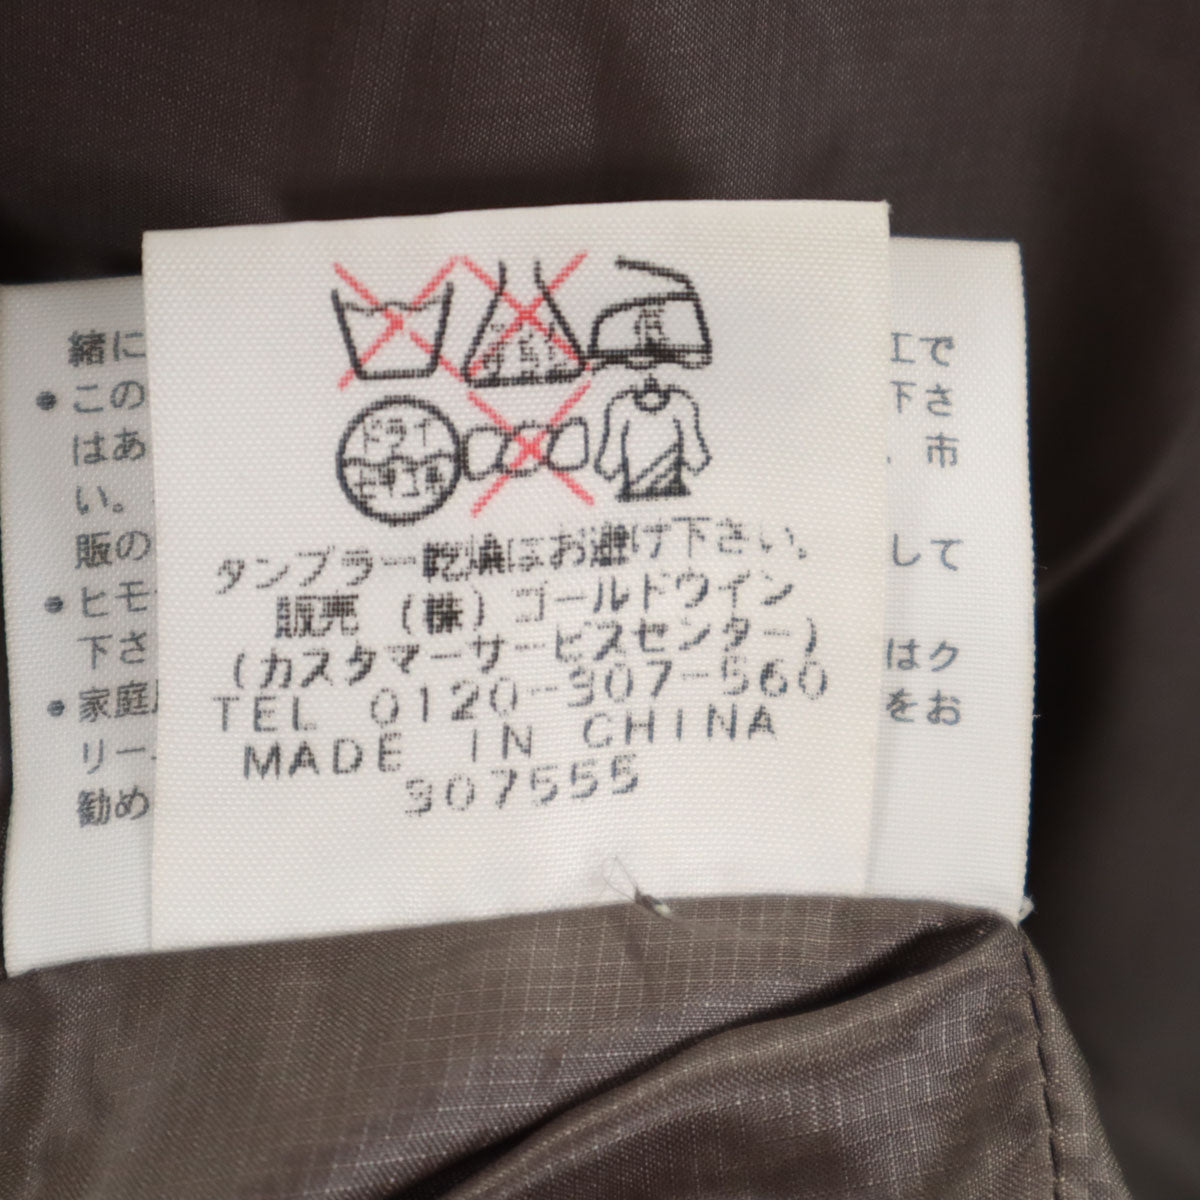 低
ドライ
タンブラー乾燥はお避け下さい。
販売 (株) ゴールドウイン
(カスタマーサービスセンター)
TEL 0120-307-560
MADE IN CHINA
307555
緒に
工で
● この
下さ
はあ
、市
い。
販の
して
● ヒモ
下さ
はク
● 家庭
をお
リー
勧め